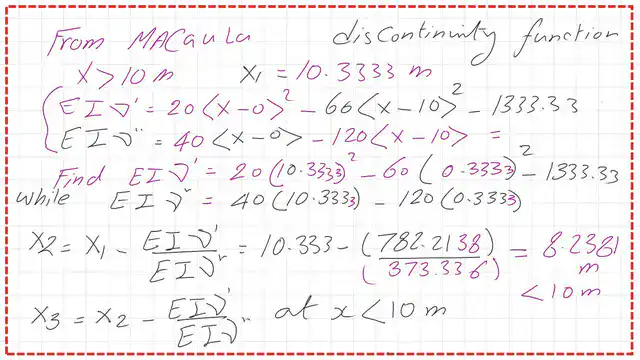 From MACaula discontinuity function
x > 10 m x₁ = 10.3333 m
EIν' = 20<x-0>² - 60<x-10>² - 1333.33
EIν'' = 40<x-0> - 120<x-10> =
Find EIν' = 20(10.3333)² - 60(0.3333)² - 1333.33
while EIν'' = 40(10.3333) - 120(0.3333)
x2 = x₁ - EIν'/EIν'' = 10.333 - (782.2138)/(373.336) = 8.2381 m < 10 m
x₃ = x₂ - EIν'/EIν'' at x < 10 m